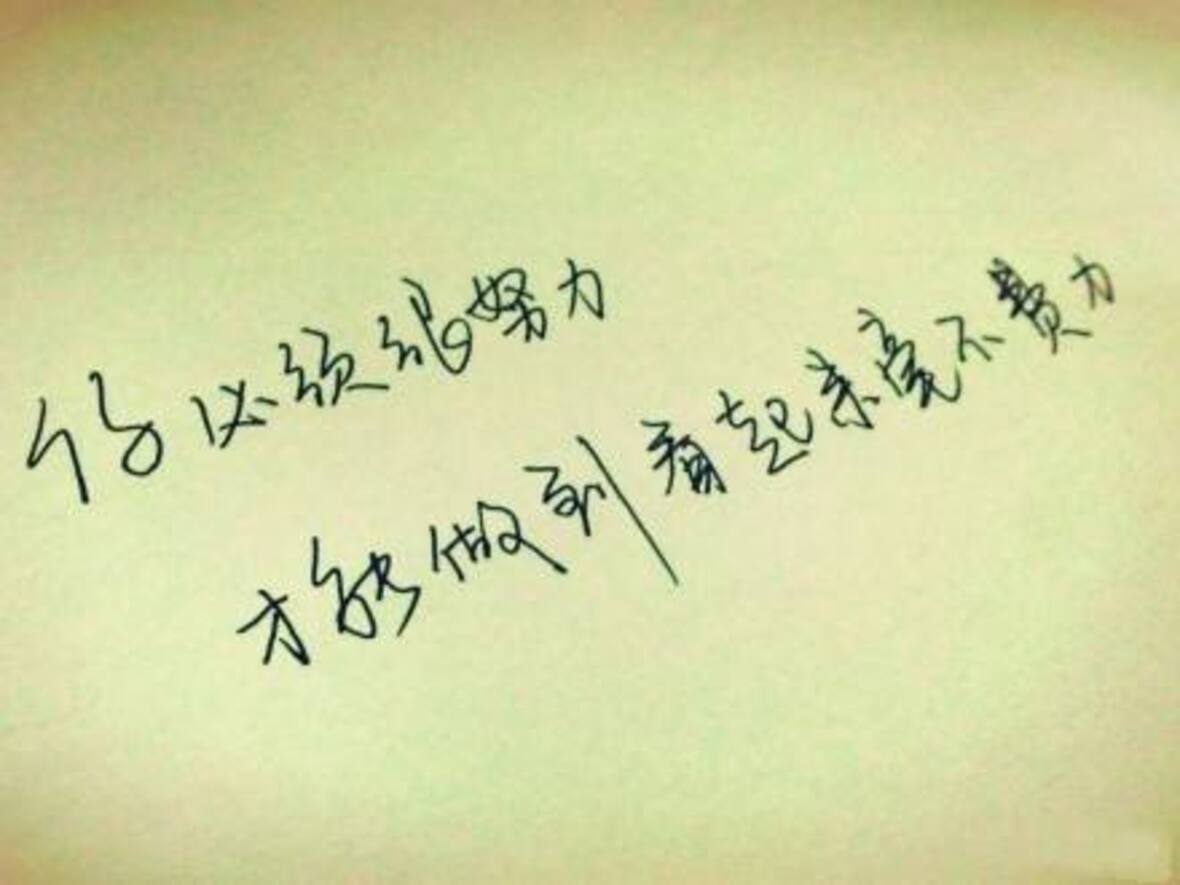 你必须很努力
才能做到看起来毫不费力